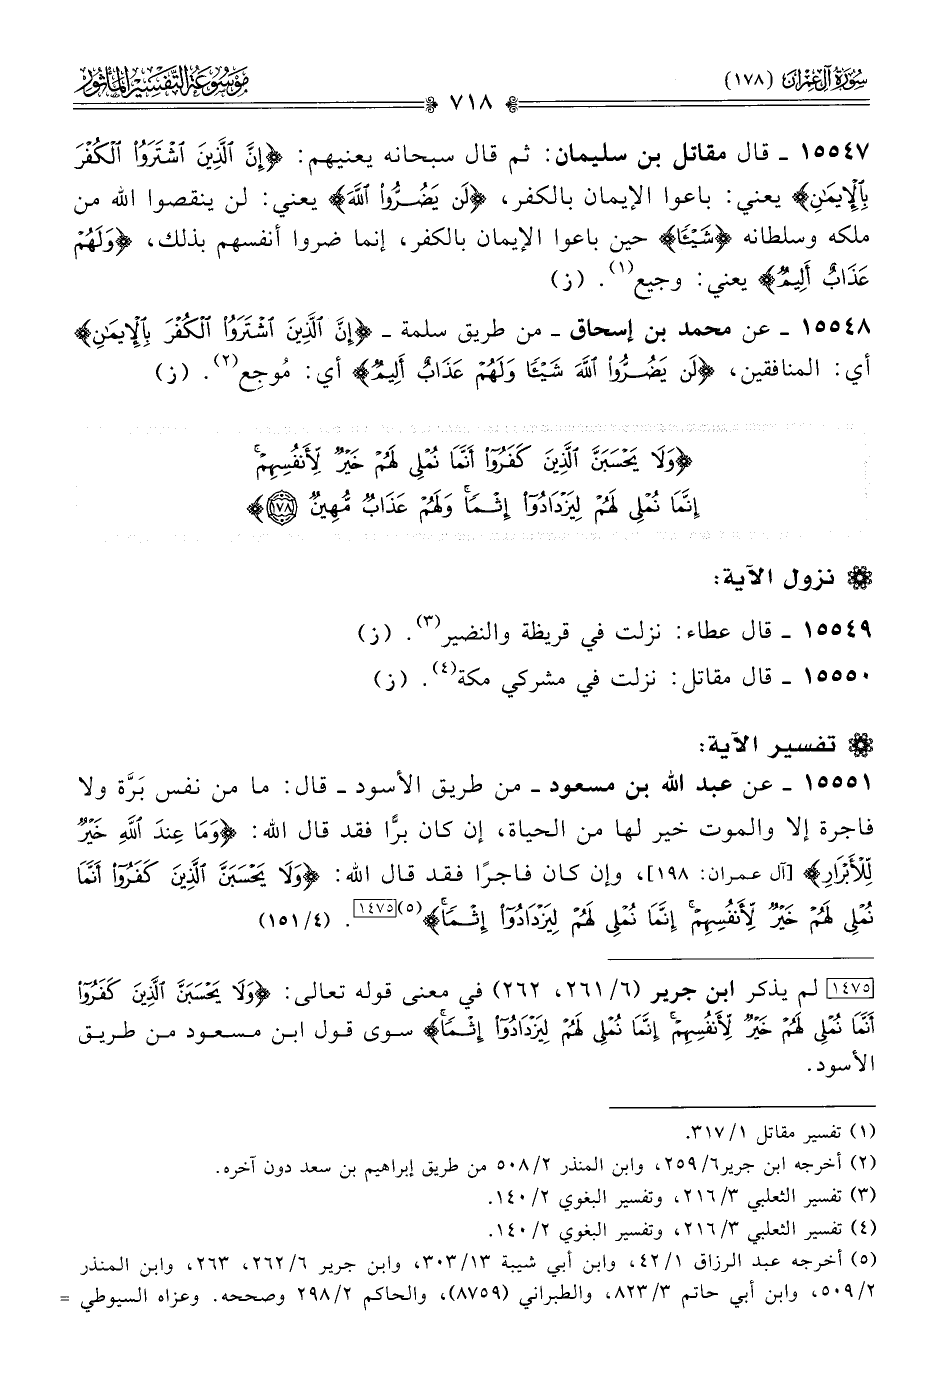 سُورَةُ آلِ عِمْرَانَ (١٧٨)
موسوعة التفسير المأثور
٧١٨
١٥٥٤٧ ـ قال مقاتل بن سليمان: ثم قال سبحانه يعنيهم: ﴿إِنَّ ٱلَّذِينَ ٱشۡتَرَوُاْ ٱلۡكُفۡرَ
بِٱلۡإِيمَٰنِ﴾ يعني: باعوا الإيمان بالكفر، ﴿لَن يَضُرُّواْ ٱللَّهَ﴾ يعني: لن ينقصوا الله من
ملكه وسلطانه ﴿شَيۡـٔٗا﴾ حين باعوا الإيمان بالكفر، إنما ضروا أنفسهم بذلك، ﴿وَلَهُمۡ
عَذَابٌ أَلِيمٞ﴾ يعني: وجيع(١). (ز)
١٥٥٤٨ ـ عن محمد بن إسحاق ـ من طريق سلمة ـ ﴿إِنَّ ٱلَّذِينَ ٱشۡتَرَوُاْ ٱلۡكُفۡرَ بِٱلۡإِيمَٰنِ﴾
أي: المنافقين، ﴿لَن يَضُرُّواْ ٱللَّهَ شَيۡـٔٗا وَلَهُمۡ عَذَابٌ أَلِيمٞ﴾ أي: مُوجع(٢). (ز)
﴿وَلَا يَحۡسَبَنَّ ٱلَّذِينَ كَفَرُوٓاْ أَنَّمَا نُمۡلِي لَهُمۡ خَيۡرٞ لِّأَنفُسِهِمۡۚ
إِنَّمَا نُمۡلِي لَهُمۡ لِيَزۡدَادُوٓاْ إِثۡمٗاۚ وَلَهُمۡ عَذَابٞ مُّهِينٞ ١٧٨﴾
نزول الآية:
١٥٥٤٩ ـ قال عطاء: نزلت في قريظة والنضير(٣). (ز)
١٥٥٥٠ ـ قال مقاتل: نزلت في مشركي مكة(٤). (ز)
تفسير الآية:
١٥٥٥١ ـ عن عبد الله بن مسعود ـ من طريق الأسود ـ قال: ما من نفس بَرَّة ولا
فاجرة إلا والموت خير لها من الحياة، إن كان برًّا فقد قال الله: ﴿وَمَا عِندَ ٱللَّهِ خَيۡرٞ
لِّلۡأَبۡرَارِ﴾ [آل عمران: ١٩٨]، وإن كان فاجرًا فقد قال الله: ﴿وَلَا يَحۡسَبَنَّ ٱلَّذِينَ كَفَرُوٓاْ أَنَّمَا
نُمۡلِي لَهُمۡ خَيۡرٞ لِّأَنفُسِهِمۡۚ إِنَّمَا نُمۡلِي لَهُمۡ لِيَزۡدَادُوٓاْ إِثۡمٗاۚ﴾(٥)[١٤٧٥]. (١٥١/٤)
[١٤٧٥] لم يذكر ابن جرير (٢٦١/٦، ٢٦٢) في معنى قوله تعالى: ﴿وَلَا يَحۡسَبَنَّ ٱلَّذِينَ كَفَرُوٓاْ
أَنَّمَا نُمۡلِي لَهُمۡ خَيۡرٞ لِّأَنفُسِهِمۡۚ إِنَّمَا نُمۡلِي لَهُمۡ لِيَزۡدَادُوٓاْ إِثۡمٗاۚ﴾ سوى قول ابن مسعود من طريق
الأسود.
(١) تفسير مقاتل ٣١٧/١.
(٢) أخرجه ابن جرير٢٥٩/٦، وابن المنذر ٥٠٨/٢ من طريق إبراهيم بن سعد دون آخره.
(٣) تفسير الثعلبي ٢١٦/٣، وتفسير البغوي ١٤٠/٢.
(٤) تفسير الثعلبي ٢١٦/٣، وتفسير البغوي ١٤٠/٢.
(٥) أخرجه عبد الرزاق ٤٢/١، وابن أبي شيبة ٣٠٣/١٣، وابن جرير ٢٦٢/٦، ٢٦٣، وابن المنذر
٥٠٩/٢، وابن أبي حاتم ٨٢٣/٣، والطبراني (٨٧٥٩)، والحاكم ٢٩٨/٢ وصححه. وعزاه السيوطي =